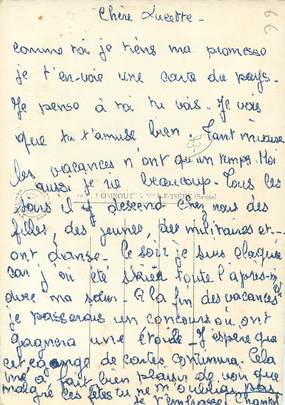 66
Chère Lucette -
comme toi je tiens ma promesse
je t'en-voie une carte du pays.
Je pense à toi tu vois. Je vois
que tu t'amuse bien. Tant mieuse
les vacances n'ont qu'un temps. Moi
aussi je rie beaucoup. Tous les
soirs il y descend chez nous des
filles, des jeunes, des militaires et
ont danse. le soir je suis claquée
car j'ai été skier toute l'après-midi
avec ma sœur. A la fin des vacances
je passerais un concours où ont
gagnera une étoile. J'espère que
cet échange de cartes continura. Cela
me à fait bien plaisir de voir que
malgré ces fêtes tu ne m'oubliais pas
je t'embrasse Chantal